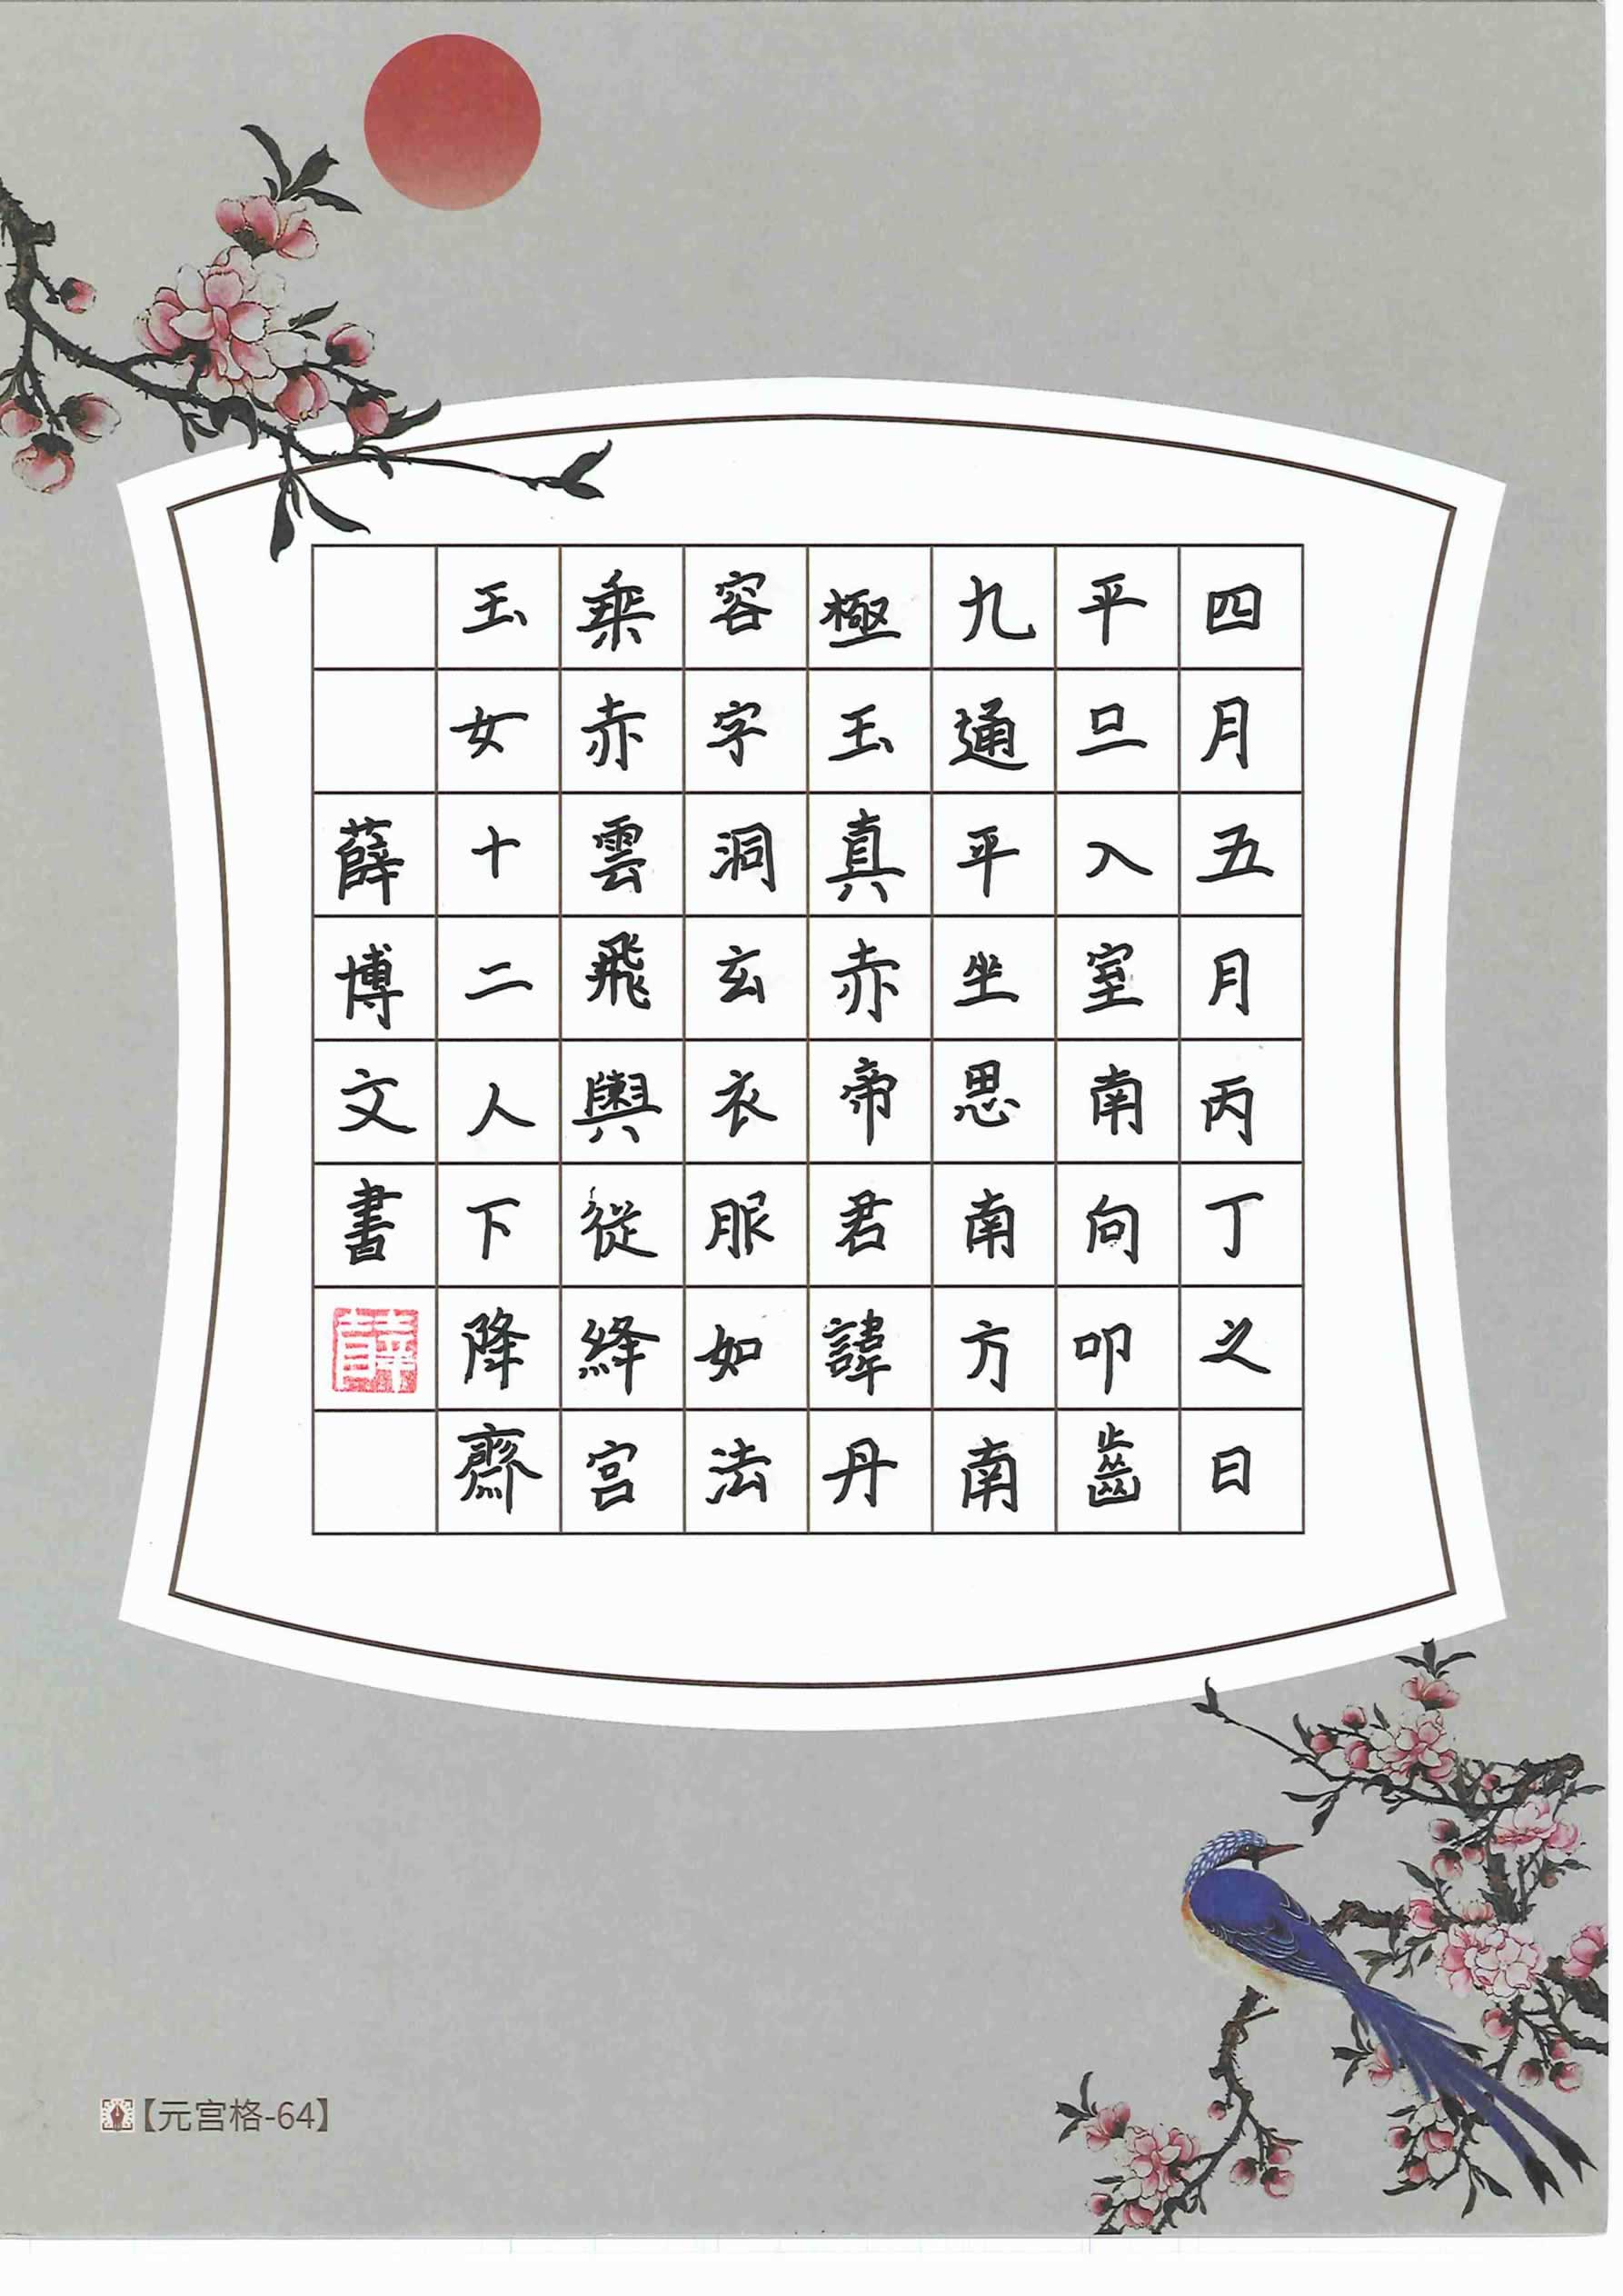 四月五月丙丁之日
平旦入室南向叩齒
九通平坐思南方南
極玉真赤帝君諱丹
容字洞玄衣服如法
乘赤雲飛輿從絳宮
玉女十二人下降齋
薛博文書
薛
【元宫格-64】